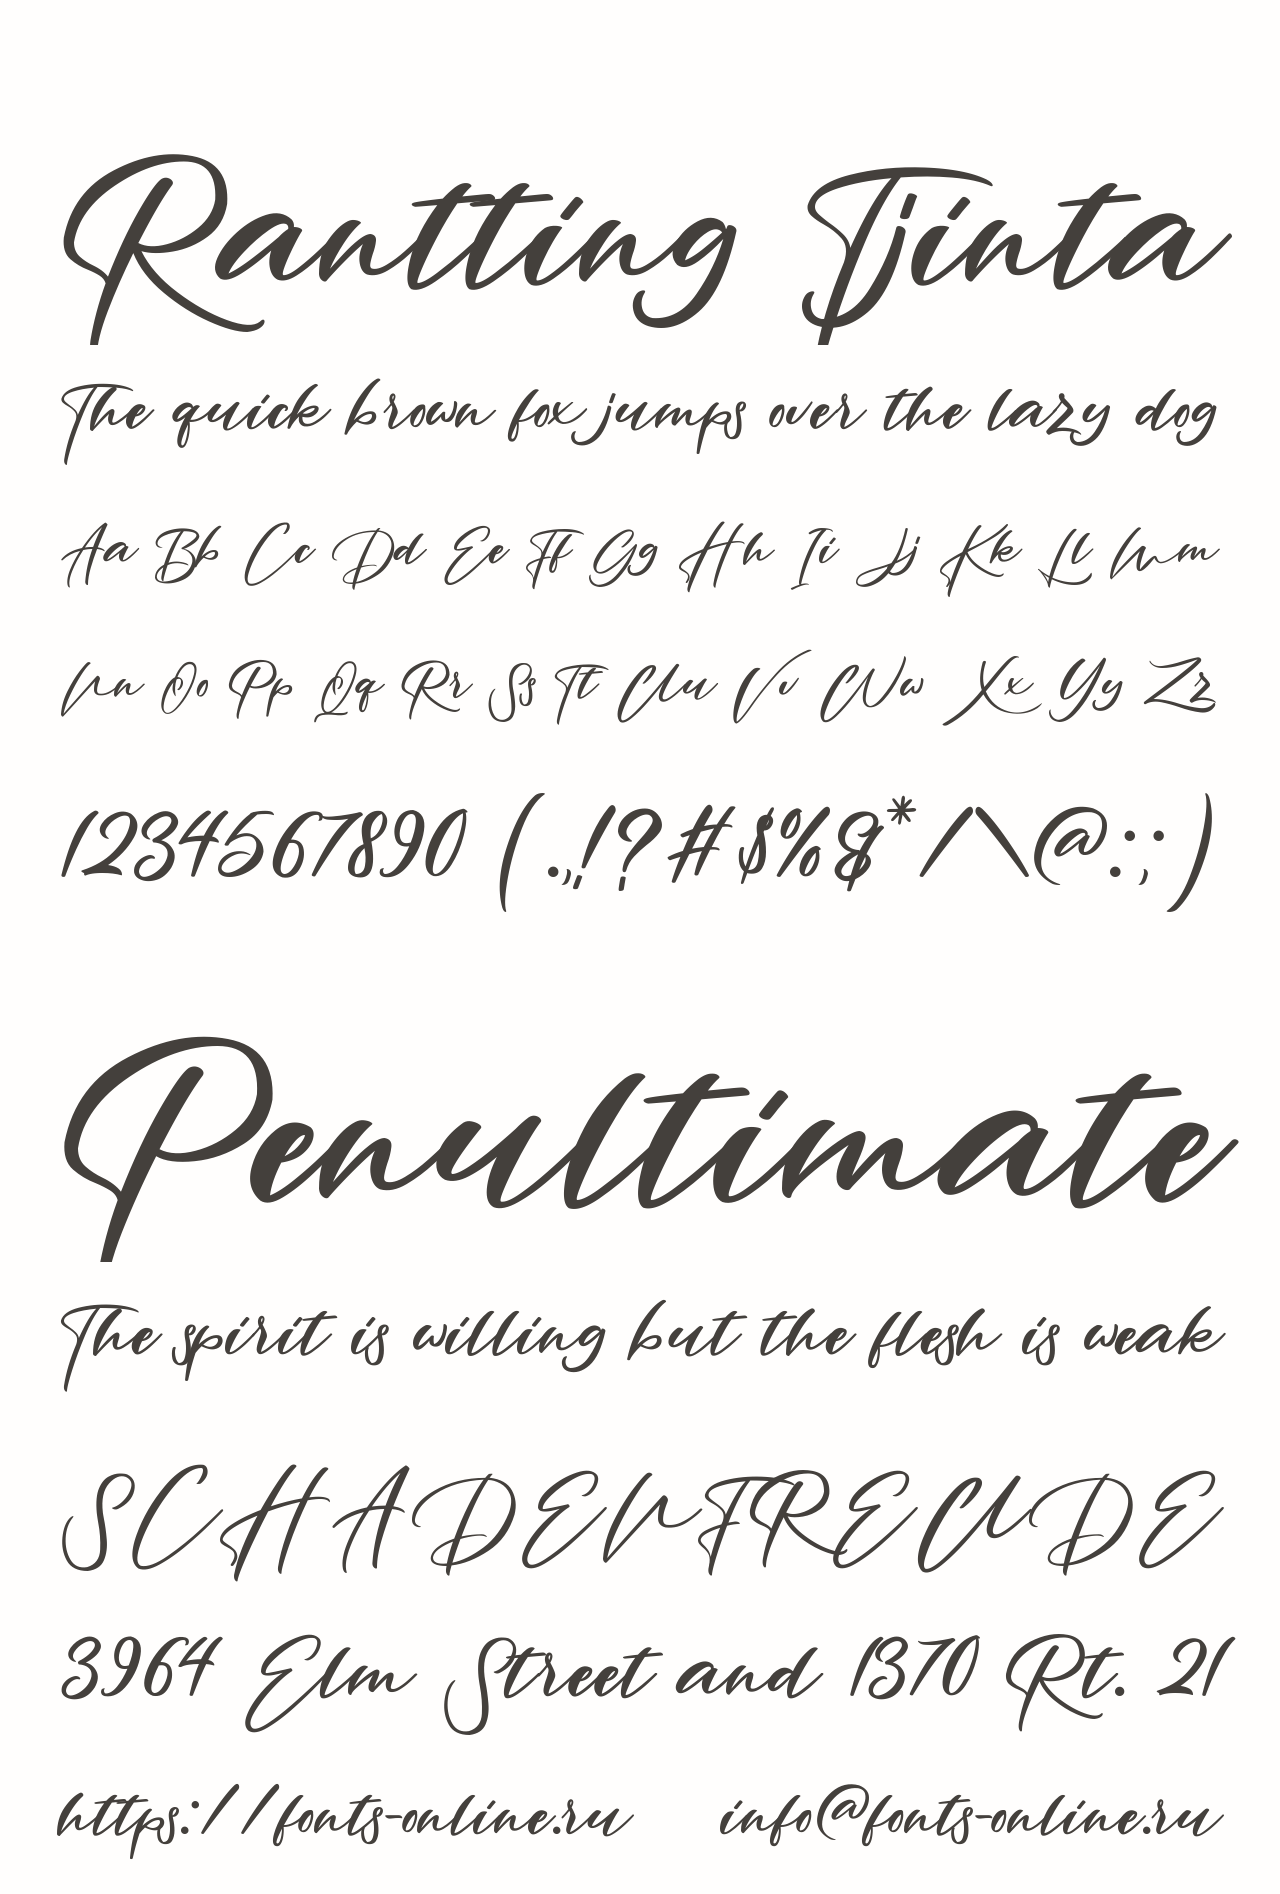 Rantting Tjinta
The quick brown fox jumps over the lazy dog
Aa Bb Cc Dd Ee Ff Gg Hh Ii Jj Kk Ll Mm
Nn Oo Pp Qq Rr Ss Tt Uu Vv Ww Xx Yy Zz
1234567890 (.,!?#$%&*/\@:;)
Penultimate
The spirit is willing but the flesh is weak
SCHADENFREUDE
3964 Elm Street and 1370 Rt. 21
https://fonts-online.ru info@fonts-online.ru